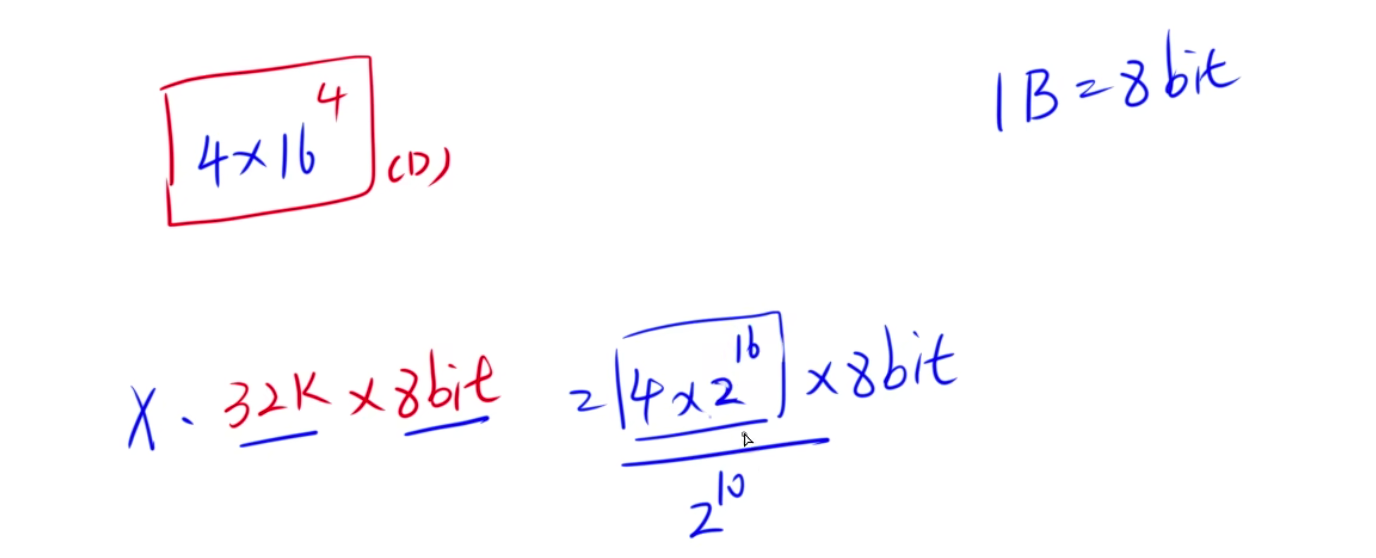 4×16⁴ (D)
1B=8bit
X · 32K × 8bit = 4×2¹⁶ × 8bit
2¹⁰